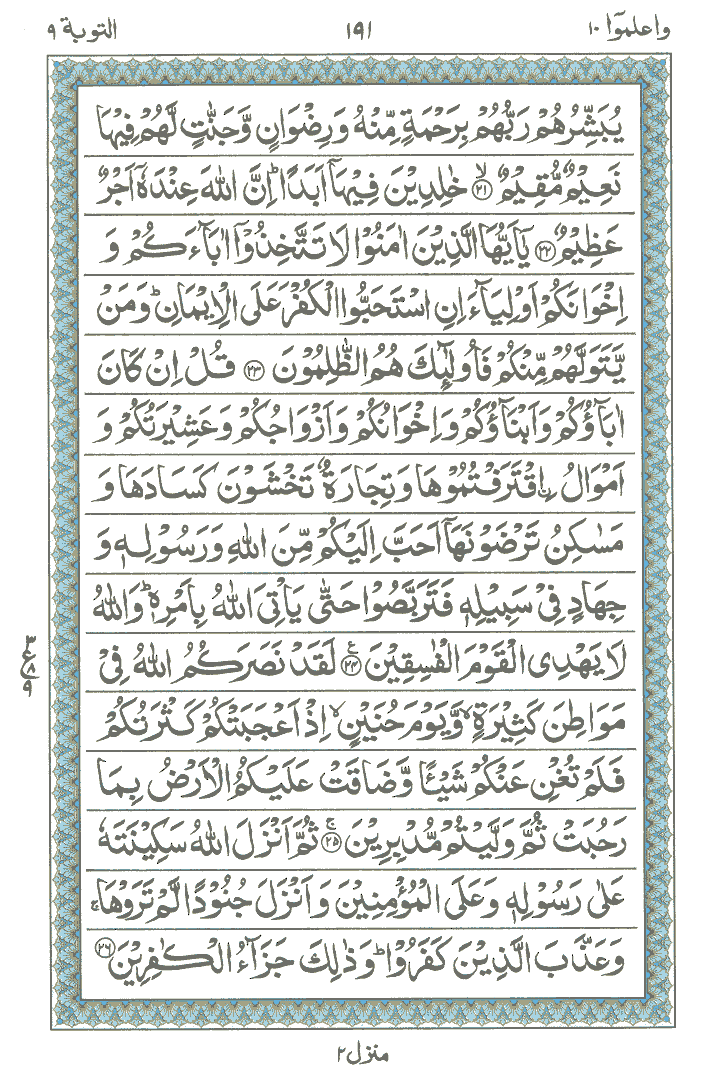 واعلموٓا ١٠ ١٩١ التوبة ٩
يُبَشِّرُهُمْ رَبُّهُمْ بِرَحْمَةٍ مِّنْهُ وَرِضْوَانٍ وَّجَنّٰتٍ لَّهُمْ فِيْهَا
نَعِيْمٌ مُّقِيْمٌ ۙ‏﴿٢١﴾ خٰلِدِيْنَ فِيْهَآ اَبَدًا ؕ اِنَّ اللّٰهَ عِنْدَهٗٓ اَجْرٌ
عَظِيْمٌ ﴿٢٢﴾ يٰٓاَيُّهَا الَّذِيْنَ اٰمَنُوْا لَا تَتَّخِذُوْٓا اٰبَآءَكُمْ وَ
اِخْوَانَكُمْ اَوْلِيَآءَ اِنِ اسْتَحَبُّوا الْكُفْرَ عَلَى الْاِيْمَانِ ؕ وَمَنْ
يَّتَوَلَّهُمْ مِّنْكُمْ فَاُولٰٓئِكَ هُمُ الظّٰلِمُوْنَ ﴿٢٣﴾ قُلْ اِنْ كَانَ
اٰبَآؤُكُمْ وَاَبْنَآؤُكُمْ وَاِخْوَانُكُمْ وَاَزْوَاجُكُمْ وَعَشِيْرَتُكُمْ وَ
اَمْوَالُ ۨاقْتَرَفْتُمُوْهَا وَتِجَارَةٌ تَخْشَوْنَ كَسَادَهَا وَ
مَسٰكِنُ تَرْضَوْنَهَآ اَحَبَّ اِلَيْكُمْ مِّنَ اللّٰهِ وَرَسُوْلِهٖ وَ
جِهَادٍ فِيْ سَبِيْلِهٖ فَتَرَبَّصُوْا حَتّٰى يَاْتِيَ اللّٰهُ بِاَمْرِهٖ ؕ وَاللّٰهُ
لَا يَهْدِى الْقَوْمَ الْفٰسِقِيْنَ ﴿٢٤﴾ ع لَقَدْ نَصَرَكُمُ اللّٰهُ فِيْ
٣
ع
٨
٩
مَوَاطِنَ كَثِيْرَةٍ ۙ وَّيَوْمَ حُنَيْنٍ ۙ اِذْ اَعْجَبَتْكُمْ كَثْرَتُكُمْ
فَلَمْ تُغْنِ عَنْكُمْ شَيْـًٔا وَّضَاقَتْ عَلَيْكُمُ الْاَرْضُ بِمَا
رَحُبَتْ ثُمَّ وَلَّيْتُمْ مُّدْبِرِيْنَ ۚ‏﴿٢٥﴾ ثُمَّ اَنْزَلَ اللّٰهُ سَكِيْنَتَهٗ
عَلٰى رَسُوْلِهٖ وَعَلَى الْمُؤْمِنِيْنَ وَاَنْزَلَ جُنُوْدًا لَّمْ تَرَوْهَا ۚ
وَعَذَّبَ الَّذِيْنَ كَفَرُوْا ؕ وَذٰلِكَ جَزَآءُ الْكٰفِرِيْنَ ﴿٢٦﴾
منزل ٢